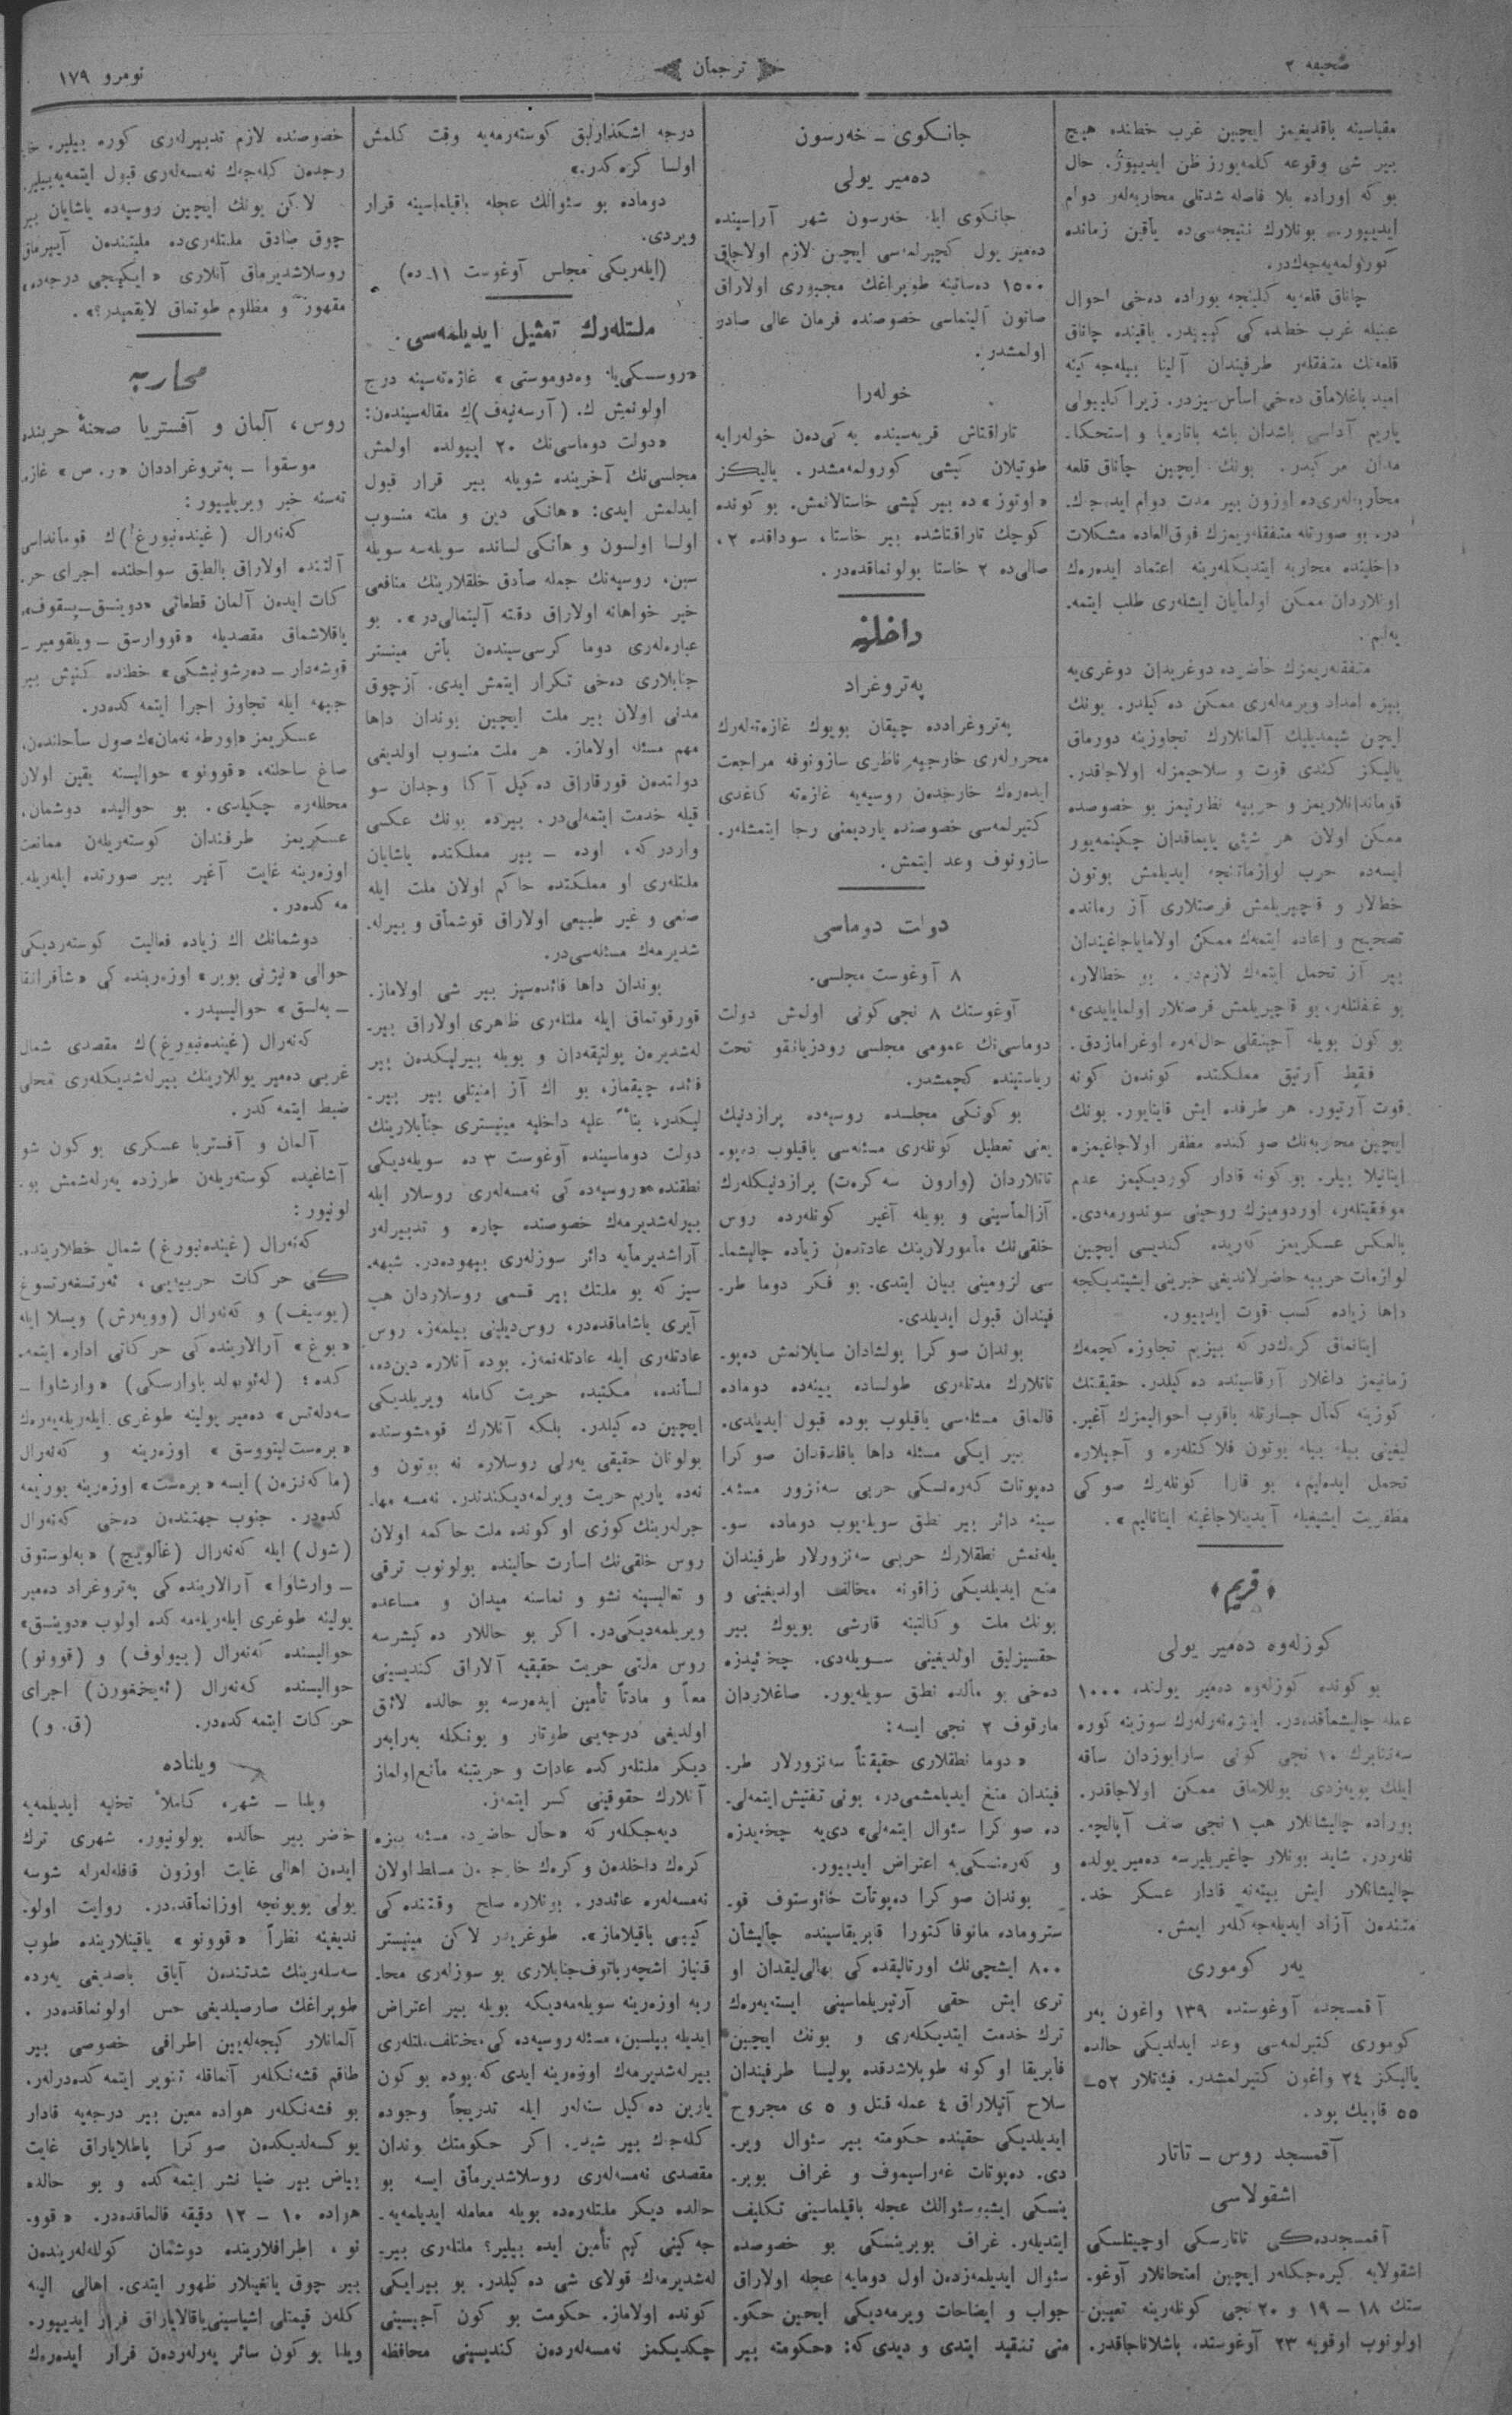 صحیفه ۲
ترجمان
نومرو ۱۷۹
مقیاسینه باقدیغیمز ایچین غرب خطنده هیچ
بیر شی وقوعه كلمه‌یورز ظن ایدییورز. حال
بو كه اوراده بلا فاصله شدتلی محاربه‌لر دوام
ایدییور. بونلارك نتیجه‌سی‌ده یاقین زمانده
كورولمه‌یه‌جه‌كدر.
چاناق قلعه‌یه كلینجه بوراده ده‌خی احوال
عینیله غرب خطنده كی كیبیدر. یاقینده چاناق
قلعه‌نك متفقلر طرفیندان آلینا بیله‌جه‌كینه
امید باغلاماق ده‌خی اساس‌سیزدر. زیرا كلیبولی
یاریم آداسی باشدان باشه باتاره‌یا و استحكا-
مدان مركبدر. بونك ایچین چاناق قلعه
محاربه‌لری‌ده اوزون بیر مدت دوام ایده‌جك-
در. بو صورتله متفقلریمزك فوق‌العاده مشكلات
داخلینده محاربه ایتدیكلرینه اعتماد ایده‌رك
اونلاردان ممكن اولمایان ایشلری طلب ایتمه-
یه‌لم.
متفقلریمزك حاضرده دوغریدان دوغری‌یه
بیزه امداد ویرمه‌لری ممكن ده‌كیلدر. بونك
ایچن شیمدیلیك آلمانلارك تجاوزینه دورماق
یالیكز كندی قوت و سلاحیمزله اولاجاقدر.
قوماندانلاریمز و حربیه نظارتیمز بو خصوصده
ممكن اولان هر شیئی یاپماقدان چكینمه‌یور
ایسه‌ده حرب لوازماتنجه ایدیلمش بوتون
خطالار و قاچیریلمش فرصتلاری آز زمانده
تصحیح و اعاده ایتمك ممكن اولامایاجاغیندان
بیر آز تحمل ایتمك لازمدر. بو خطالار،
بو غفلتلر، بو قاچیریلمش فرصتلار اولمایایدی،
بو كون بویله آجینقلی حاللره اوغرامازدق.
فقط آرتیق مملكتده كوندن كونه
قوت آرتیور. هر طرفده ایش قاینایور. بونك
ایچین محاربه‌نك صوكنده مظفر اولاجاغیمزه
اینانیلا بیلر. بو كونه قادار كوردیكیمز عدم
موفقیتلر، اوردومیزك روحینی سوندورمه‌دی.
بالعكس عسكریمز كریده كندیسی ایچین
لوازمات حربیه حاضرلاندیغی خبرینی ایشیتدیكجه
داها زیاده كسب قوت ایدییور.
اینانماق كرك‌دركه بیزیم تجاوزه كچمك
زمانیمز داغلار آرقاسینده ده‌كیلدر. حقیقتك
كوزینه كمال جسارتله باقوب احوالیمزك آغیر-
لیغینی بیله بیله بوتون فلاكتلره و آجیلاره
تحمل ایده‌لیم، بو قارا كونلرك صوكی
مظفریت ایشیغیله آیدینلاجاغینه اینانالیم».
﴿ قریم ﴾
كوزله‌وه ده‌میر یولی
بو كونده كوزله‌وه ده‌میر یولنده ۱۰۰۰
عمله چالیشماقده‌در. اینژه‌نه‌رلرك سوزینه كوره
سه‌نتابرك ۱۰ نجی كونی سارابوزدان ساقه
ایلك پویه‌زدی یوللاماق ممكن اولاجاقدر.
بوراده چالیشانلار هپ ۱ نجی صنف آپالچه-
نلردر. شاید بونلار چاغیریلیرسه ده‌میر یولده
چالیشانلار ایش بیتنه قادار عسكر خد-
متندن آزاد ایدیله‌جه‌كلر ایمش.
یه‌ر كوموری
آقمسجده آوغوستده ۱۳۹ واغون یه‌ر
كوموری كتیرلمه‌سی وعد ایدلدیكی حالده
یالیكز ۲٤ واغون كتیرلمشدر. فیئاتلار ۵۲-
۵۵ قاپیك بود.
آقمسجد روس - تاتار
اشقولاسی
آقمسجدده‌كی تاتارسكی اوچیتلسكی
اشقولایه كیره‌جكلر ایچین امتحانلار آوغو-
ستك ۱۸ - ۱۹ و ۲۰ نجی كونلرینه تعیین
اولونوب اوقویه ۲۳ آوغوستده باشلاناجاقدر.
جانكوی - خه‌رسون
ده‌میر یولی
جانكوی ایله خه‌رسون شهر آراسینده
ده‌میر یول كچیرلمه‌سی ایچین لازم اولاجاق
۱۵۰۰ ده‌ساتینه طوپراغك مجبوری اولاراق
صاتون آلینماسی خصوصنده فرمان عالی صادر
اولمشدر.
خوله‌را
تاراقتاش قریه‌سینده یه‌كی‌دن خوله‌رایه
طوتیلان كیشی كورولمه‌مشدر. یالیكز
«اوتوز»ده بیر كیشی خاستالانمش. بو كونده
كوچك تاراقتاشده بیر خاستا، سوداقده ۲،
صالی‌ده ۲ خاستا بولونماقده‌در.
داخلیه
په‌تروغراد
په‌تروغرادده چیقان بویوك غازه‌ته‌لرك
محررلری خارجیه ناظری سازونوفه مراجعت
ایده‌رك خارجدن روسیه‌یه غازه‌ته كاغدی
كتیرلمه‌سی خصوصنده یاردیمنی رجا ایتمشلر.
سازونوف وعد ایتمش.
دولت دوماسی
۸ آوغوست مجلسی.
آوغوستك ۸ نجی كونی اولمش دولت
دوماسی‌نك عمومی مجلسی رودزیانقو تحت
ریاستینده كچمشدر.
بو كونكی مجلسده روسیه‌ده پرازدنیك
یعنی تعطیل كونلری مسئله‌سی باقیلوب ده‌پو-
تاتلاردان (وارون سه‌كره‌ت) پرازدنیكلرك
آزالماسینی و بویله آغیر كونلرده روس
خلقی‌نك مأمورلارینك عادتدن زیاده چالیشما-
سی لزومینی بیان ایتدی. بو فكر دوما طر-
فیندان قبول ایدیلدی.
بوندان صوكرا بولشادان سایلانمش ده‌پو-
تاتلارك مدتلری طولساده یینه‌ده دوماده
قالماق مسئله‌سی باقیلوب بوده قبول ایدیلدی.
بیر ایكی مسئله داها باقلدقدان صوكرا
ده‌پوتات كه‌ره‌نسكی حربی سه‌نزور مسئله-
سینه دائر بیر نطق سویله‌یوب دوماده سو-
یله‌نمش نطقلارك حربی سه‌نزورلار طرفیندان
منع ایدیلدیكی زاقونه مخالف اولدیغینی و
بونك ملت وكالتینه قارشی بویوك بیر
حقسیزلیق اولدیغینی سویله‌دی. چخئیدزه
ده‌خی بو مآلده نطق سویله‌یور. صاغلاردان
مارقوف ۲ نجی ایسه:
«دوما نطقلاری حقیقتاً سه‌نزورلار طر-
فیندان منع ایدیلمشمی‌در، بونی تفتیش ایتمه‌لی-
ده صوكرا سئوال ایتمه‌لی» دی‌یه چخئیدزه
و كه‌ره‌نسكی‌یه اعتراض ایدییور.
بوندان صوكرا ده‌پوتات خائوستوف قو-
ستروماده مانوفاكتورا فابریقاسینده چالیشان
۸۰۰ ایشچی‌نك اورتالیقده‌كی بهالی‌لیقدان او
تری ایش حقی آرتیریلماسینی ایسته‌یه‌رك
ترك خدمت ایتدیكلری و بونك ایچین
فابریقا اوكونه طوپلاشدقده پولیسا طرفیندان
سلاح آتیلاراق ٤ عمله قتل و ۵ ی مجروح
ایدیلدیكی حقینده حكومته بیر سئوال ویر-
دی. ده‌پوتات غه‌راسیموف و غراف بوبر-
ینسكی ایشبو سئوالك عجله باقیلماسینی تكلیف
ایتدیلر. غراف بوبرینسكی بو خصوصده
سئوال ایدیلمه‌زدن اول دومایه عجله اولاراق
جواب و ایضاحات ویرمه‌دیكی ایچین حكو-
متی تنقید ایتدی و دیدی كه: «حكومته بیر
درجه اشكذارلیق كوسته‌رمه‌یه وقت كلمش
اولسا كره‌كدر.»
دوماده بو سئوالك عجله باقیلماسینه قرار
ویردی.
(ایلریكی مجلس آوغوست ۱۱ ده)
ملتلرك تمثیل ایدیلمه‌سی
«روسسكی‌یا وه‌دوموستی» غازه‌ته‌سینه درج
اولونمش ك. (آرسه‌نیه‌ف)ك مقاله‌سیندن:
«دولت دوماسی‌نك ۲۰ اییولده اولمش
مجلسی‌نك آخرینده شویله بیر قرار قبول
ایدلمش ایدی: «هانكی دین و ملته منسوب
اولسا اولسون و هانكی لسانده سویلسه سویله
سین، روسیه‌نك جمله صادق خلقلارینك منافعی
خیر خواهانه اولاراق دقته آلینمالی‌در». بو
عباره‌لری دوما كرسی‌سیندن باش مینستر
جنابلاری ده‌خی تكرار ایتمش ایدی. آزچوق
مدنی اولان بیر ملت ایچین بوندان داها
مهم مسئله اولاماز. هر ملت منسوب اولدیغی
دولتدن قورقاراق ده‌كیل آكا وجدان سو
قیله خدمت ایتمه‌لی‌در. بیزده بونك عكسی
واردركه، اوده - بیر مملكتده یاشایان
ملتلری او مملكتده حاكم اولان ملت ایله
صنعی و غیر طبیعی اولاراق قوشماق و بیرله-
شدیرمك مسئله‌سی‌در.
بوندان داها فائده‌سیز بیر شی اولاماز.
قورقوتماق ایله ملتلری ظاهری اولاراق بیر-
له‌شدیرن پولتیقه‌دان و بویله بیرلیكدن بیر
فائده چیقماز، بو اك آز امنیتلی بیر بیر-
لیكدر، بناءً علیه داخلیه مینیستری جنابلارینك
دولت دوماسینده آوغوست ۳ ده سویله‌دیكی
نطقنده «روسیه‌ده كی نه‌مسه‌لری روسلار ایله
بیرلشدیرمك خصوصنده چاره و تدبیرلر
آراشدیرمایه دائر سوزلری بیهوده‌در. شبهه-
سیزكه بو ملتك بیر قسمی روسلاردان هپ
آیری یاشاماقده‌در، روس دیلینی بیلمه‌ز، روس
عادتلری ایله عادتله‌نمه‌ز. بوده آنلاره دین‌ده،
لسانده، مكتبده حریت كامله ویریلدیكی
ایچین ده‌كیلدر. بلكه آنلارك قومشوسنده
بولونان حقیقی یه‌رلی روسلاره نه بوتون و
نه‌ده یاریم حریت ویرلمه‌دیكندندر. نه‌مسه مها-
جرلرینك كوزی اوكونده ملت حاكمه اولان
روس خلقی‌نك اسارت حالینده بولونوب ترقی
و تعالیسینه نشو و نماسنه میدان و مساعده
ویریلمه‌دیكی‌در. اكر بو حاللار ده‌كیشرسه
روس ملتی حریت حقیقیه آلاراق كندیسینی
معناً و مادتاً تأمین ایده‌رسه بو حالده لائق
اولدیغی درجه‌یی طوتار و بونكله به‌رابر
دیكر ملتلركده عادات و حریتینه مانع اولماز
آنلارك حقوقینی كسر ایتمه‌ز.
دیه‌جكلركه «حال حاضرده مسئله بیزه
كرك داخلدن و كرك خارجدن مسلط اولان
نه‌مسه‌لره عائددر. بونلاره صلح وقتنده‌كی
كیبی باقیلاماز». طوغریدر لاكن مینیستر
قنیاز اشچه‌رباتوف جنابلاری بو سوزلری محا-
ربه اوزرینه سویله‌مه‌دیكه بویله بیر اعتراض
ایدیله بیلسین، مسئله روسیه‌ده كی مختلف ملتلری
بیرله‌شدیرمك اوزرینه ایدی كه بوده بو كون
یارین ده‌كیل سنه‌لر ایله تدریجاً وجوده
كله‌جك بیر شیدر. اكر حكومتك بوندان
مقصدی نه‌مسه‌لری روسلاشدیرماق ایسه بو
حالده دیكر ملتلره‌ده بویله معامله ایدیلمه‌یه-
جه‌كینی كیم تأمین ایده بیلیر؟ ملتلری بیر-
له‌شدیرمك قولای شی ده‌كیلدر. بو بیر ایكی
كونده اولاماز. حكومت بو كون آجیسینی
چكدیكمز نه‌مسه‌لردن كندیسینی محافظه
خصوصنده لازم تدبیرلری كوره بیلیر. خا
رجدن كله‌جك نه‌مسه‌لری قبول ایتمه‌یه بیلیر.
لاكن بونك ایچین روسیه‌ده یاشایان بیر
چوق صادق ملتلری‌ده ملیتندن آییرماق
روسلاشدیرماق آنلاری «ایكینجی درجه‌ده»
مقهور و مظلوم طوتماق لایقمیدر؟».
محاربه
روس، آلمان و آفستریا صحنهٔ حربنده
موسقوا - په‌تروغراددان «ر. ص» غازه
ته‌سنه خبر ویریلییور:
كه‌نه‌رال (غینده‌نبورغ)ك قومانداسی
آلتنده اولاراق بالطیق سواحلنده اجرای حر-
كات ایدن آلمان قطعاتی «دوینسق-پسقوف»ه
یاقلاشماق مقصدیله «قووارسق - ویلقومیر -
قوشه‌دار - ده‌رشونیشكی» خطنده كنیش بیر
جبهه ایله تجاوز اجرا ایتمه‌كده‌در.
عسكریمز «اورطه نه‌مان»ك صول ساحلندن،
صاغ ساحلنه، «قوونو» حوالیسنه یقین اولان
محللره چكیلدی. بو حوالیده دوشمان،
عسكریمز طرفندان كوسته‌ریلن ممانعت
اوزرینه غایت آغیر بیر صورتده ایلریله-
مه‌كده‌در.
دوشمانك اك زیاده فعالیت كوسته‌ردیكی
حوالی «نیژنی بوبر» اوزرینده كی «شافرانقا
- به‌لسق» حوالیسیدر.
كه‌نه‌رال (غینده‌نبورغ)ك مقصدی شمال
غربی ده‌میر یوللارینك بیرله‌شدیكلری محلی
ضبط ایتمه‌كدر.
آلمان و آفستریا عسكری بو كون شو
آشاغیده كوسته‌ریلن طرزده یه‌رله‌شمش بو-
لونیور:
كه‌نه‌رال (غینده‌نبورغ) شمال خطلارینده-
كی حركات حربیه‌یی، ئه‌رتسغه‌رتسوغ
(یوسیف) و كه‌نه‌رال (وویه‌رش) ویسلا ایله
«بوغ» آرالارینده كی حركاتی اداره ایتمه-
كده؛ (له‌ئوپولد باوارسكی) «وارشاوا -
سه‌دله‌تس» ده‌میر یولینه طوغری ایلریله‌یه‌رك
«بره‌ست لیتووسق» اوزرینه و كه‌نه‌رال
(ماكه‌نزه‌ن) ایسه «بره‌ست» اوزرینه یوریمه
كده‌در. جنوب جهتندن ده‌خی كه‌نه‌رال
(شول) ایله كه‌نه‌رال (غالویچ) «به‌لوستوق
- وارشاوا» آرالارینده كی په‌تروغراد ده‌میر
یولینه طوغری ایلریله‌مه‌كده اولوب «دوینسق»
حوالیسنده كه‌نه‌رال (بیولوف) و (قوونو)
حوالیسنده كه‌نه‌رال (ئه‌یخغورن) اجرای
حركات ایتمه‌كده‌در. (ق. و)
ویلناده
ویلنا - شهر، كاملاً تخلیه ایدیلمه‌یه
حاضر بیر حالده بولونیور. شهری ترك
ایدن اهالی غایت اوزون قافله‌لرله شوسه
یولی بویونجه اوزانماقده‌در. روایت اولو-
ندیغینه نظراً «قوونو» یاقینلارینده طوب
سه‌سلرینك شدتندن آیاق باصدیغی یه‌رده
طوپراغك صارصیلدیغی حس اولونماقده‌در.
آلمانلار كیجه‌له‌یین اطرافی خصوصی بیر
طاقم فشه‌نكلر آتماقله تنویر ایتمه‌كده‌درلر.
بو فشه‌نكلر هواده معین بیر درجه‌یه قادار
یوكسه‌لدیكدن صوكرا پاطلایاراق غایت
بیاض بیر ضیا نشر ایتمه‌كده و بو حالده
هواده ۱۰ - ۱۲ دقیقه قالماقده‌در. «قوو-
نو» اطرافلارینده دوشمان كولله‌لریندن
بیر چوق یانغینلار ظهور ایتدی. اهالی الینه
كلن قیمتلی اشیاسینی یاقالایاراق فرار ایدییور.
ویلنا بو كون سائر یه‌رلردن فرار ایده‌رك